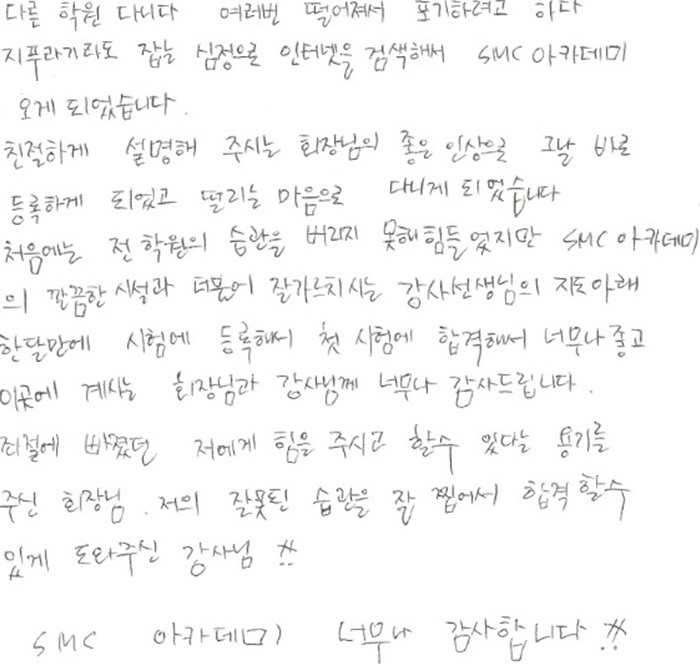 다른 학원 다니다 여러번 떨어져서 포기하려고 하다
지푸라기라도 잡는 심정으로 인터넷을 검색해서 SMC 아카데미
오게 되었습니다.
친절하게 설명해 주시는 회장님의 좋은 인상으로 그날 바로
등록하게 되었고 떨리는 마음으로 다니게 되었습니다
처음에는 전 학원의 습관을 버리지 못해 힘들었지만 SMC 아카데미
의 깔끔한 시설과 더불어 잘가르치시는 강사선생님의 지도아래
한달만에 시험에 등록해서 첫 시험에 합격해서 너무나 좋고
이곳에 계시는 회장님과 강사님께 너무나 감사드립니다.
좌절에 빠졌던 저에게 힘을 주시고 할수 있다는 용기를
주신 회장님. 저의 잘못된 습관을 잘 찝어서 합격 할수
있게 도와주신 강사님 !!
SMC 아카데미 너무나 감사합니다 !!